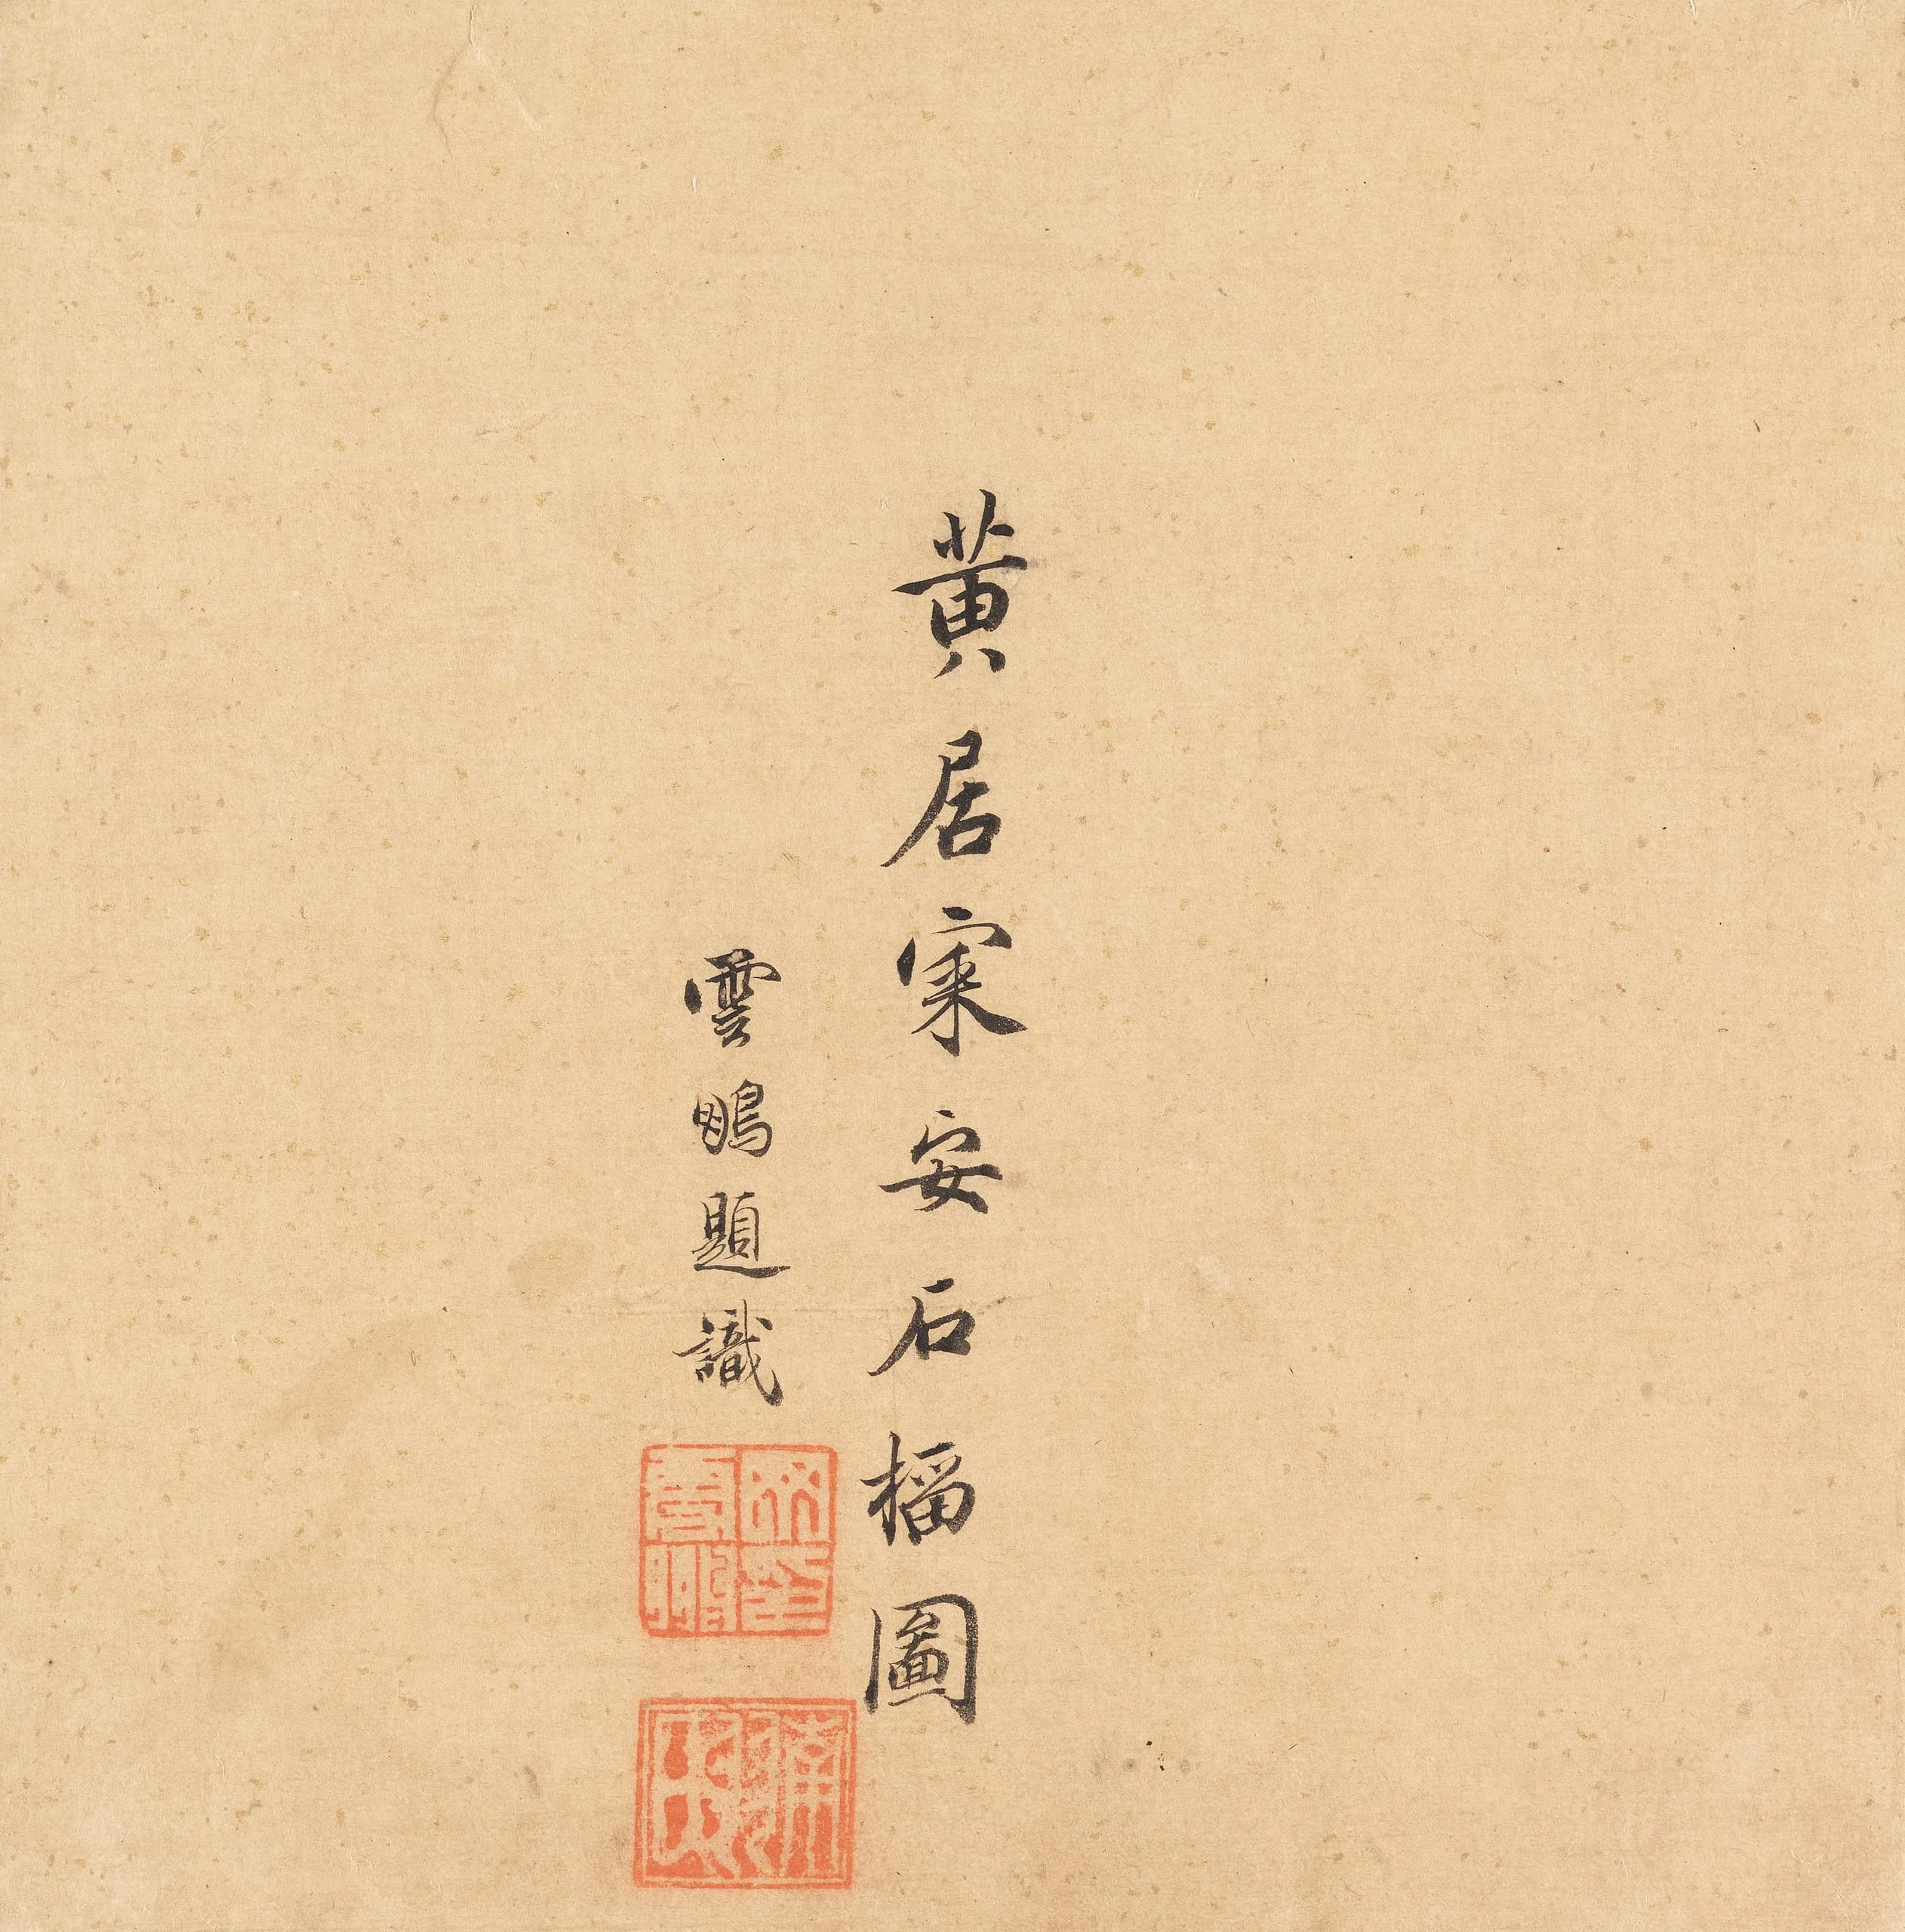 黄居寀安石榴圖
雲鵬題識